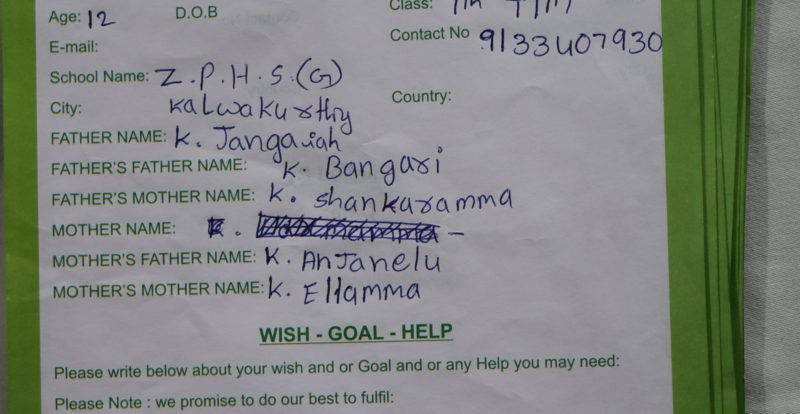 Age: 12 D.O.B Class:
E-mail: Contact No 9133407930
School Name: Z.P.H.S.(G)
City: Kalwakurthy Country:
FATHER NAME: K. Jangaiah
FATHER'S FATHER NAME: K. Bangari
FATHER'S MOTHER NAME: K. Shankaramma
MOTHER NAME: K. –
MOTHER'S FATHER NAME: K. Anjanelu
MOTHER'S MOTHER NAME: K. Ellamma
WISH - GOAL - HELP
Please write below about your wish and or Goal and or any Help you may need:
Please Note : we promise to do our best to fulfil: